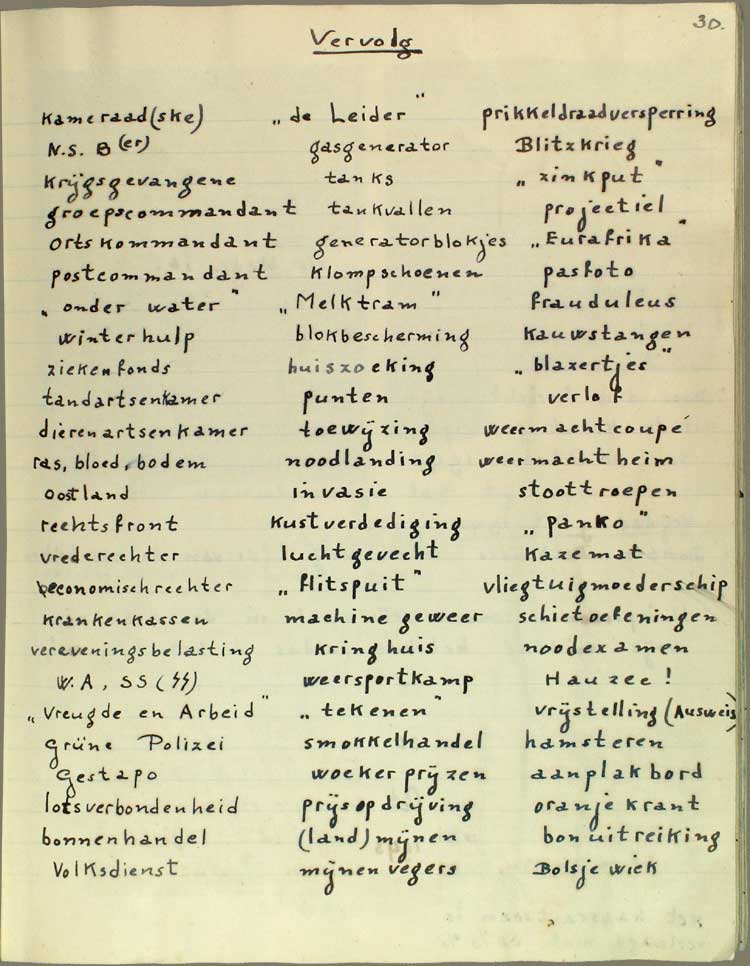 30.
Vervolg
kameraad(ske) „de Leider" prikkeldraadversperring
N.S.B(er) gasgenerator Blitzkrieg
krijgsgevangene tanks „zinkput"
groepscommandant tankvallen projectiel
Ortskommandant generatorblokjes „Eurafrika"
postcommandant klompschoenen pasfoto
„onder water" „Melktram" frauduleus
winterhulp blokbescherming kauwstangen
ziekenfonds huiszoeking „blazertjes"
tandartsenkamer punten verlof
dierenartsenkamer toewijzing weermachtcoupé
ras, bloed, bodem noodlanding weermachtheim
Oostland invasie stoottroepen
rechtsfront kustverdediging „panko"
vrederechter luchtgevecht kazemat
economischrechter „flitspuit" vliegtuigmoederschip
krankenkassen machine geweer schietoefeningen
vereveningsbelasting kringhuis noodexamen
W.A, SS (ϟϟ) weersportkamp Hauzee!
„Vreugde en Arbeid" „tekenen" vrijstelling (Ausweis)
Grüne Polizei smokkelhandel hamsteren
Gestapo woekerprijzen aanplakbord
lotsverbondenheid prijsopdrijving oranje krant
bonnenhandel (land)mijnen bonuitreiking
Volksdienst mijnenvegers Bolsjewiek